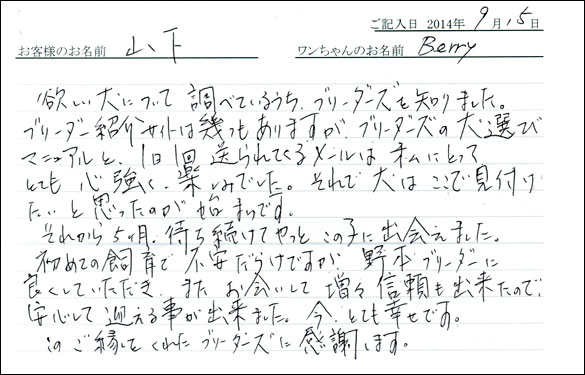 ご記入日 2014年 9月15日
お客様のお名前 山下 ワンちゃんのお名前 Berry
欲しい犬について調べているうち、ブリーダーズを知りました。
ブリーダー紹介サイトは幾つもありますが、ブリーダーズの犬選び
マニュアルと、1日1回送られてくるメールは私にとって
とても心強く、楽しみでした。それで犬はここで見付け
たいと思ったのが始まりです。
それから5ヶ月、待ち続けてやっとこの子に出会えました。
初めての飼育で不安だらけですが、野本ブリーダーに
良くしていただき、またお会いして増々信頼も出来たので、
安心して迎える事が出来ました。今、とても幸せです。
このご縁をくれたブリーダーズに感謝します。